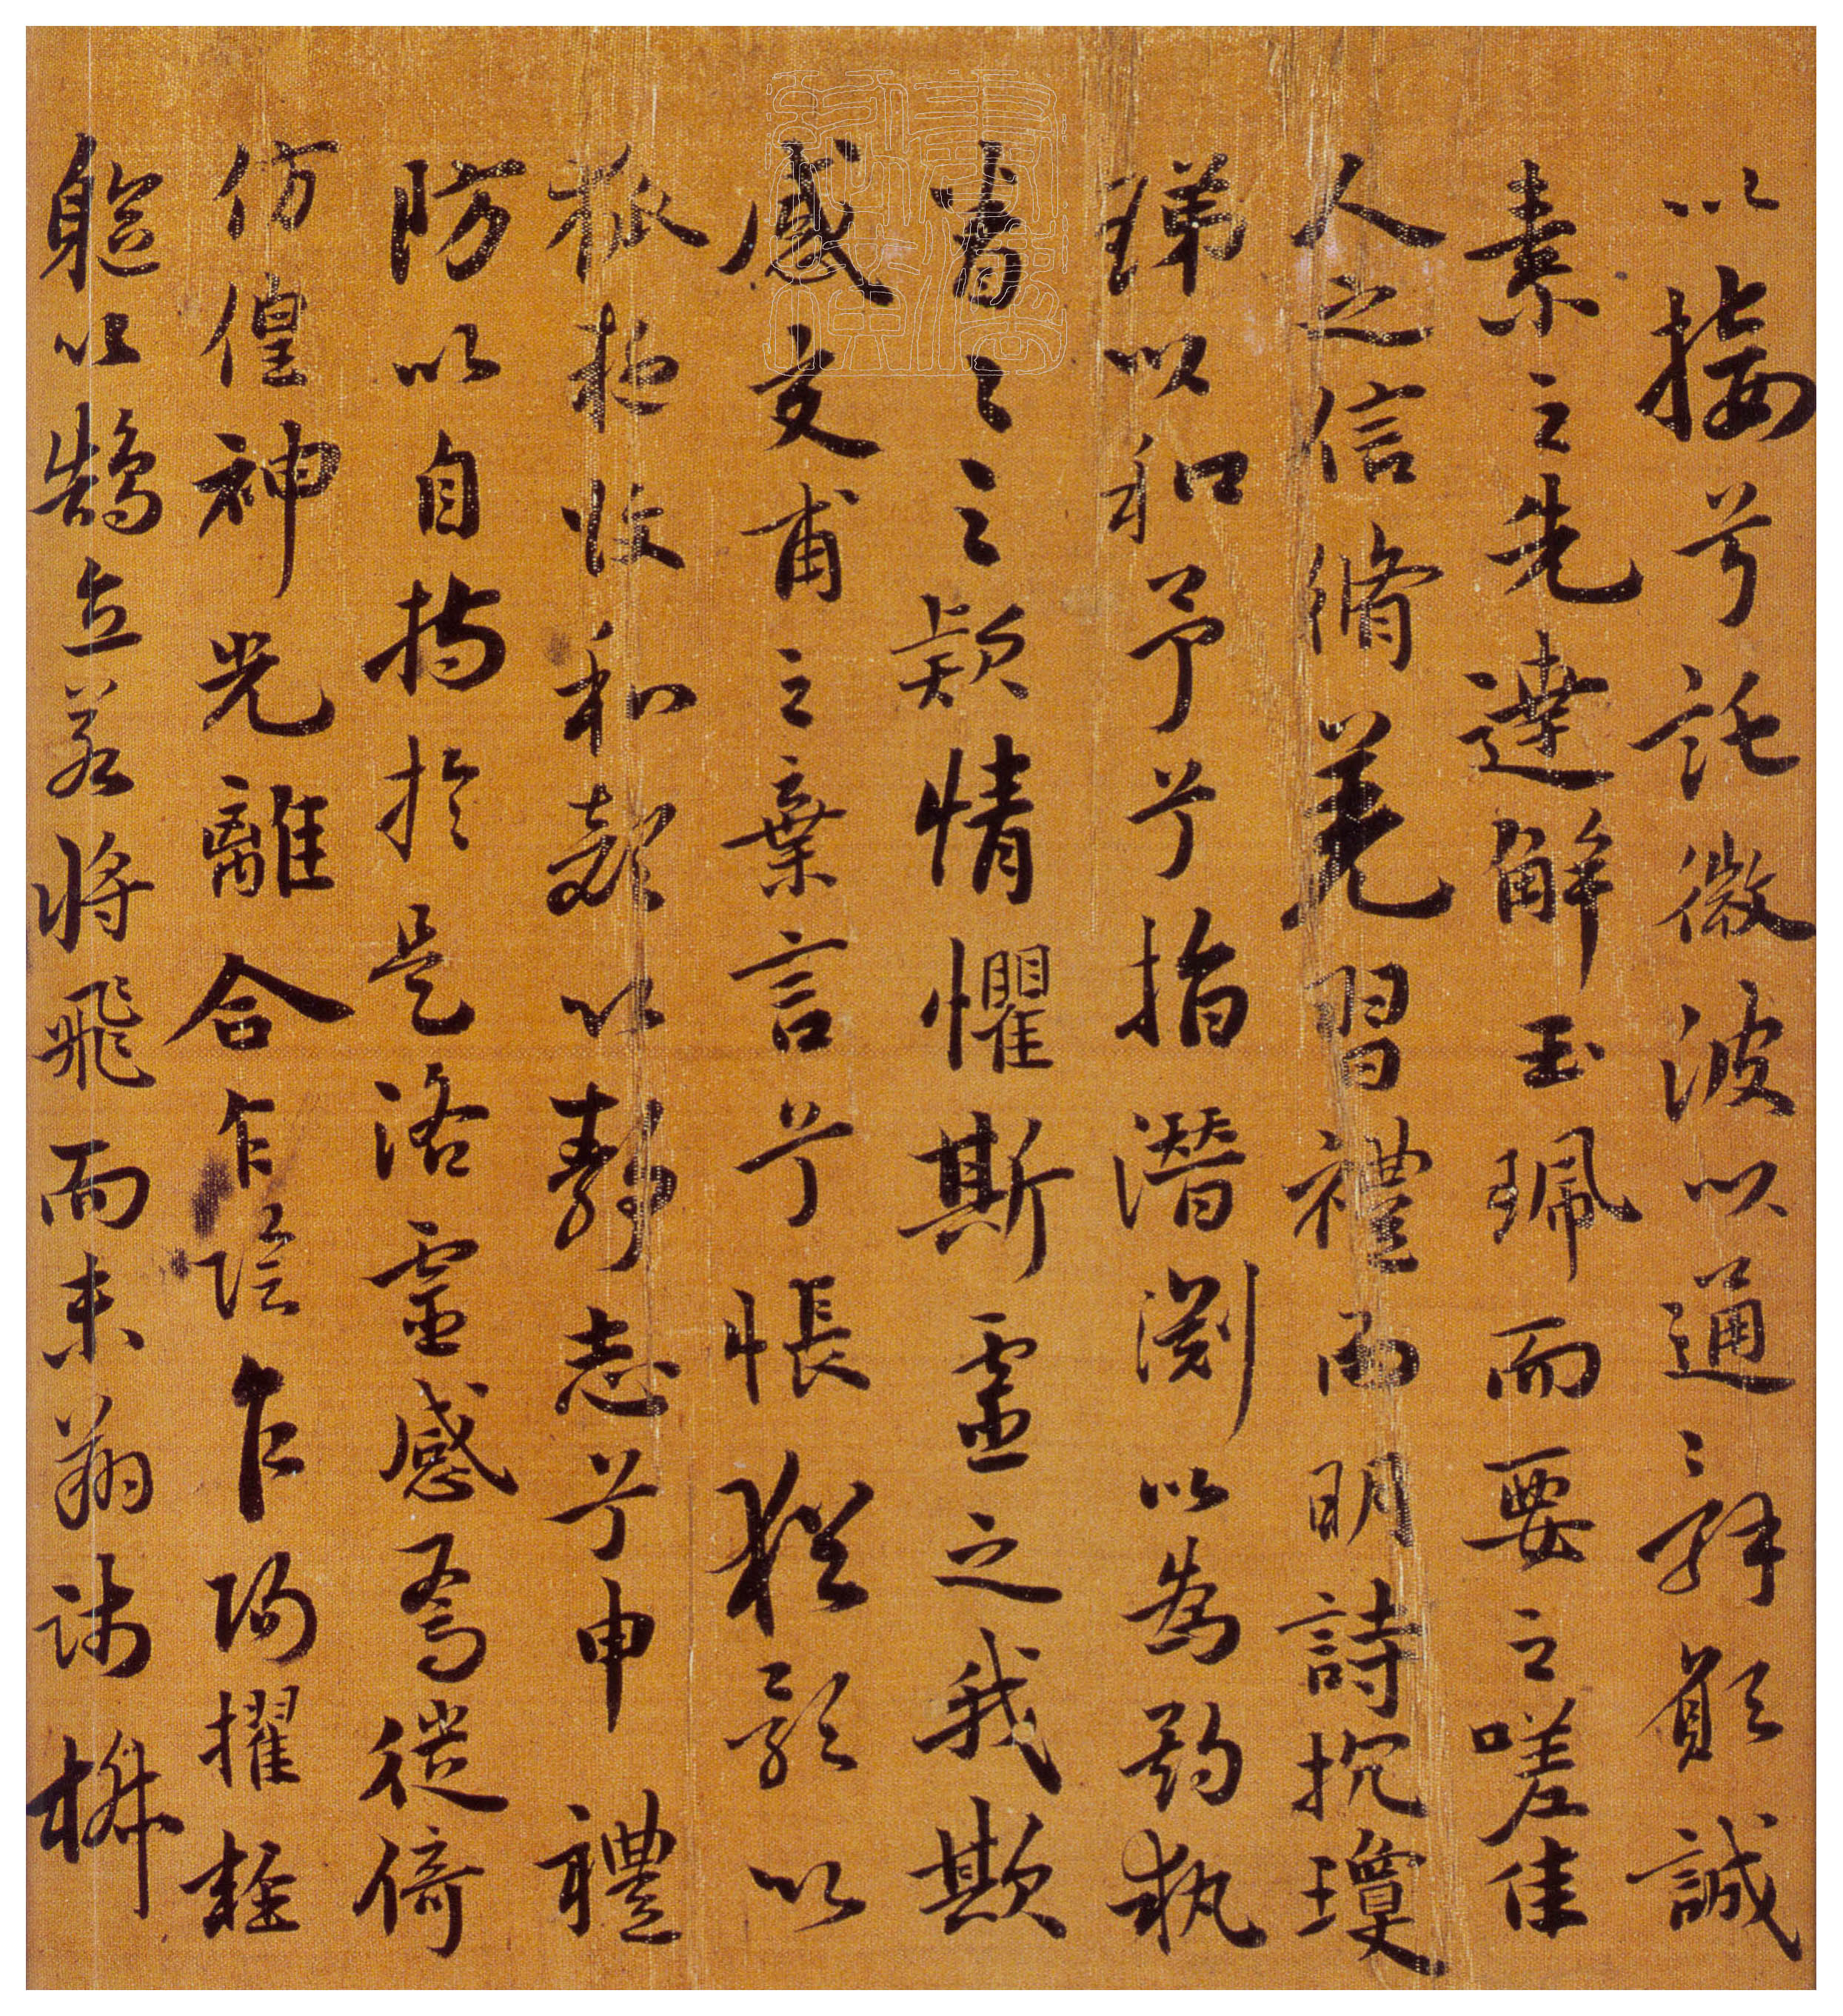 以接兮託微波以通〻辞願誠
素之先達解玉珮而要之嗟佳
人之信脩羌習禮而明詩抗瓊
珶以和予兮指潛渕以為期執
眷〻之款情懼斯靈之我欺
感交甫之棄言兮悵猶豫以
狐疑收和顏以静志兮申禮
防以自持於是洛靈感焉徙倚
仿偟神光離合乍陰乍陽擢輕
軀以鶴立若將飛而未翔踐椒